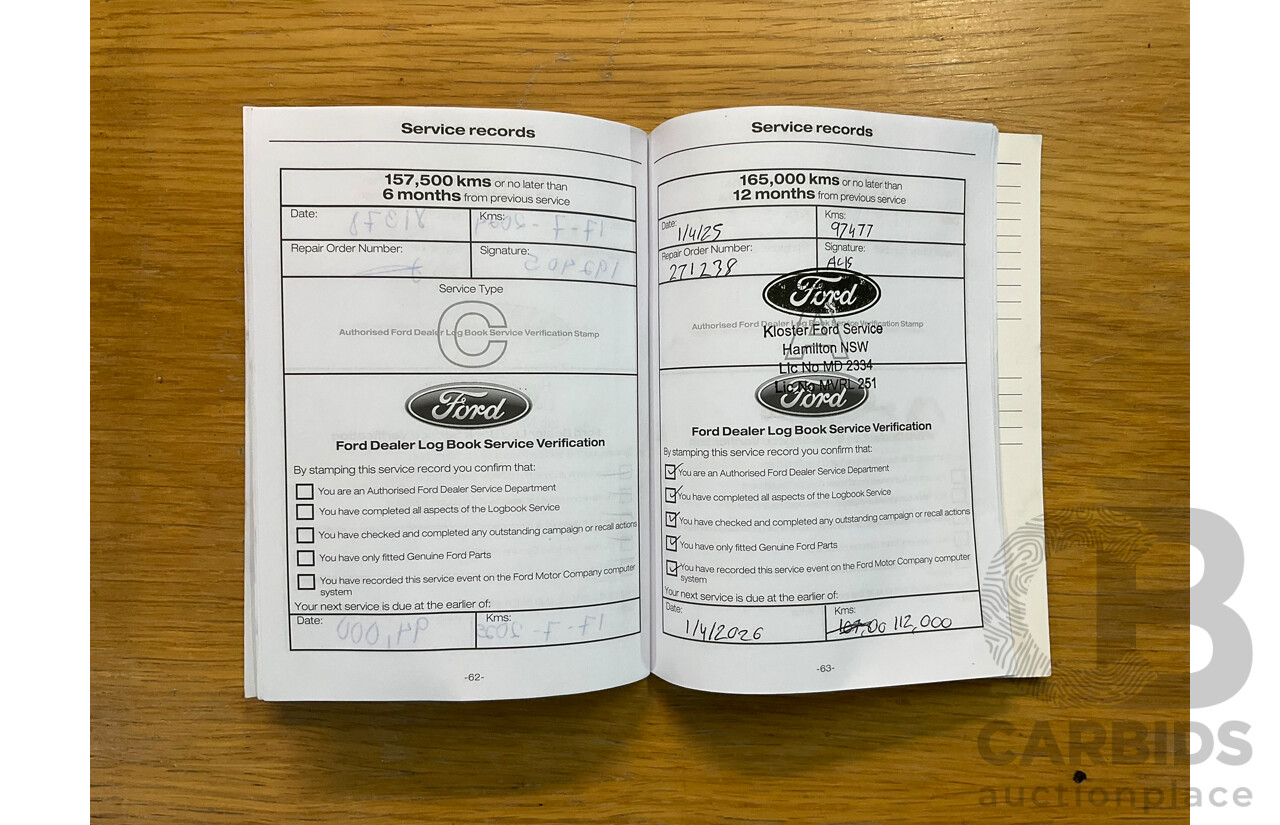 Service records
157,500 kms or no later than
6 months from previous service
Date:
Kms:
Repair Order Number:
Signature:
Service Type
C
Authorised Ford Dealer Log Book Service Verification Stamp
Ford
Ford Dealer Log Book Service Verification
By stamping this service record you confirm that:
You are an Authorised Ford Dealer Service Department
You have completed all aspects of the Logbook Service
You have checked and completed any outstanding campaign or recall actions
You have only fitted Genuine Ford Parts
You have recorded this service event on the Ford Motor Company computer
system
Your next service is due at the earlier of:
Date:
Kms:
-62-
Service records
165,000 kms or no later than
12 months from previous service
Date: 1/4/25
Kms: 97477
Repair Order Number: 271238
Signature:
Ford
A
Authorised Ford Dealer Log Book Service Verification Stamp
Kloster Ford Service
Hamilton NSW
Lic No MD 2334
Lic No MVRL 251
Ford
Ford Dealer Log Book Service Verification
By stamping this service record you confirm that:
You are an Authorised Ford Dealer Service Department
You have completed all aspects of the Logbook Service
You have checked and completed any outstanding campaign or recall actions
You have only fitted Genuine Ford Parts
You have recorded this service event on the Ford Motor Company computer
system
Your next service is due at the earlier of:
Date: 1/4/2026
Kms: 112,000
-63-
CB
CARBIDS
auctionplace